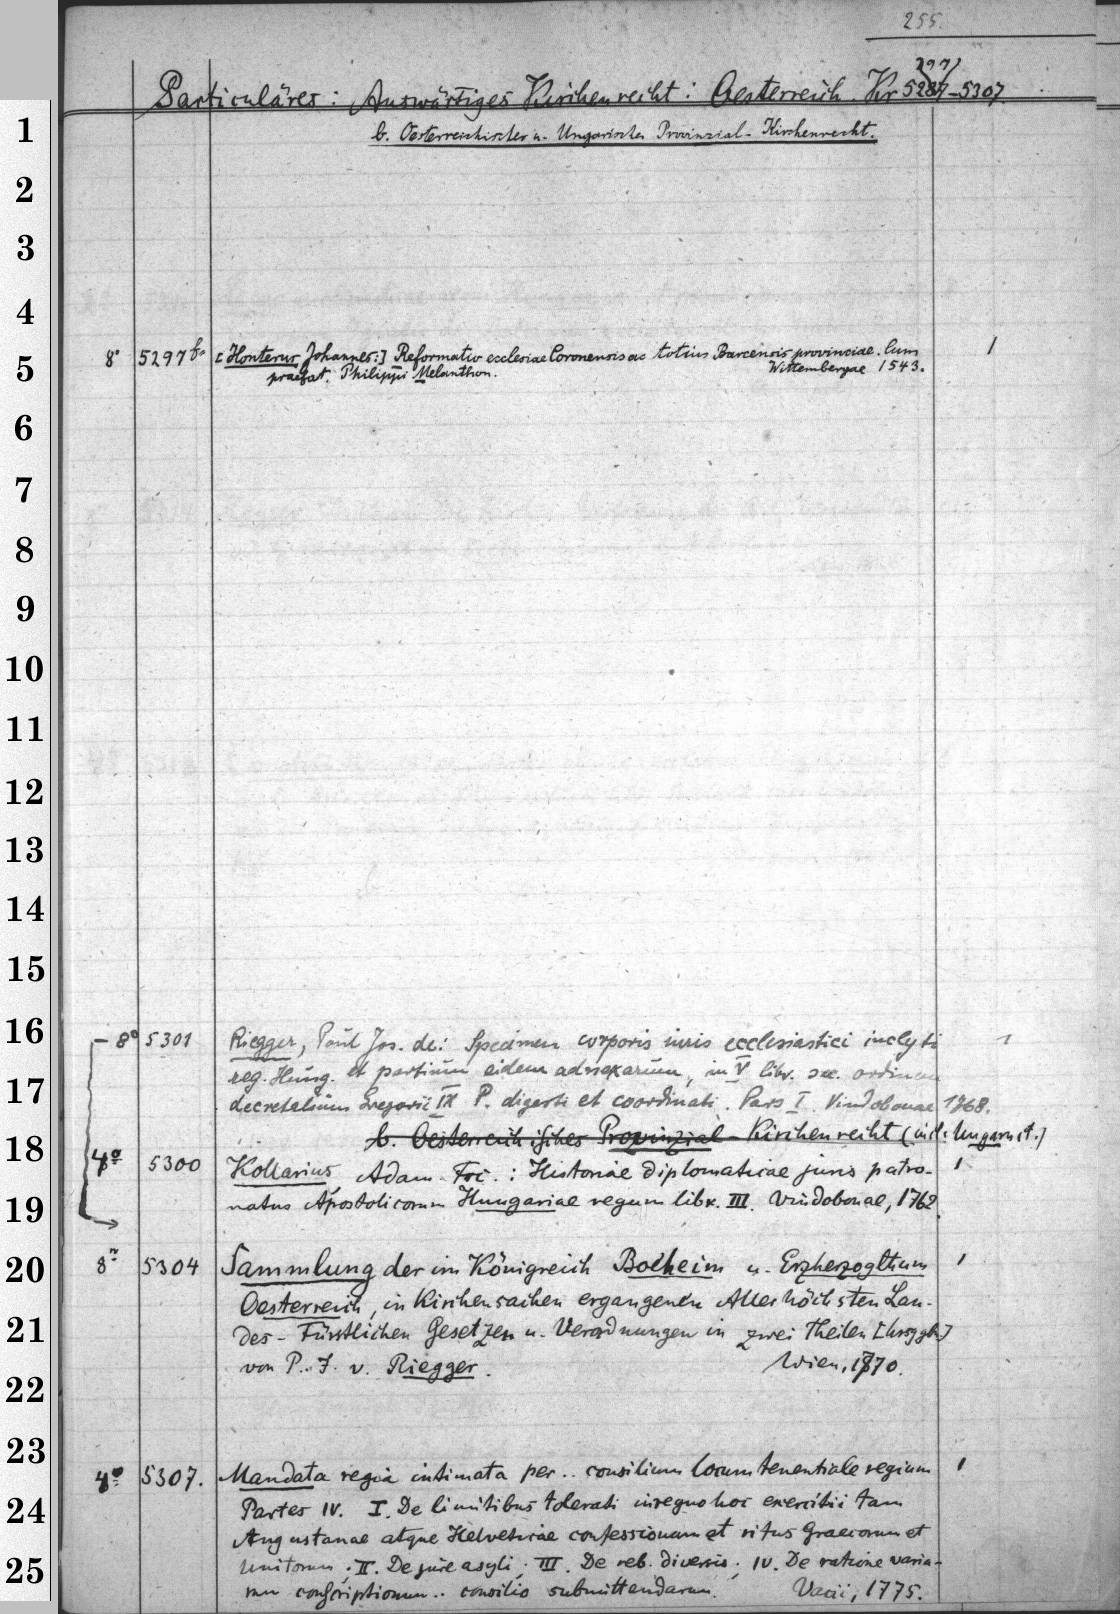 255.
297
Particuläres: Auswärtiges Kirchenrecht: Oesterreich. Kr 5287-5307.
b. Oesterreichisches u. Ungarisches Provinzial-Kirchenrecht.
1
2
3
4
8° 5297 b. [Honterus, Johannes:] Reformatio ecclesiae Coronensis ac totius Barcensis provinciae. Cum 1
5
praefat. Philippi Melanthon. Wittembergae 1543.
6
7
8
9
10
11
12
13
14
15
16
8° 5301 Riegger, Paul Jos. de: Specimen corporis iuris ecclesiastici inclyti 1
reg. Hung. et partium eidem adnexarum, in V libr. sec. ordinem
17
decretalium Gregorii IX P. digesti et coordinati. Pars I. Vindobonae 1768.
b. Oesterreichisches Provinzial-Kirchenrecht (incl. Ungarn)
18
4° 5300 Kollarius, Adam Frc.: Historiae diplomaticae juris patro- 1
natus Apostolicorum Hungariae regum libr. III. Vindobonae, 1762.
19
20
8° 5304 Sammlung der im Königreich Boeheim u. Erzherzogthum 1
Oesterreich, in Kirchensachen ergangenen Allerhöchsten Lan-
21
des-Fürstlichen Gesetzen u. Verordnungen in zwei Theilen [hrsgg b.]
von P. J. v. Riegger. Wien, 1870.
22
23
4° 5307. Mandata regia intimata per .. consilium locumtenentiale regium 1
24
Partes IV. I. De limitibus tolerati in regno hoc exercitii tam
Augustanae atque Helveticae confessionum et ritus Graecorum et
25
Unitorum; II. De jure asyli; III. De reb. diversis; IV. De ratione varia-
rum conscriptionum .. consilio submittendarum. Vacii, 1775.